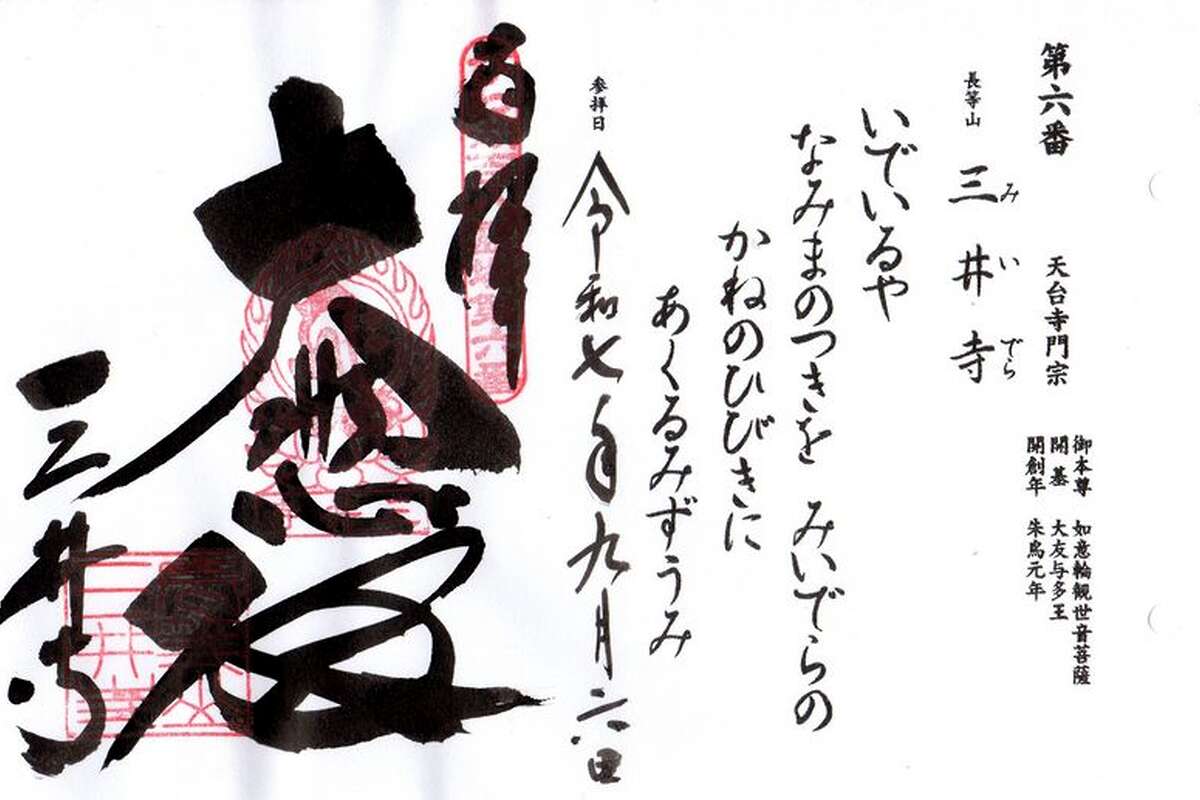 第六番 天台寺門宗
御本尊 如意輪観世音菩薩
開基 大友与多王
開創年 朱鳥元年
長等山 三井寺
みいでら
いでいるや
なみまのつきを みいでらの
かねのひびきに
あくるみずうみ
参拝日 令和七年九月六日
奉拝
大悲殿
三井寺